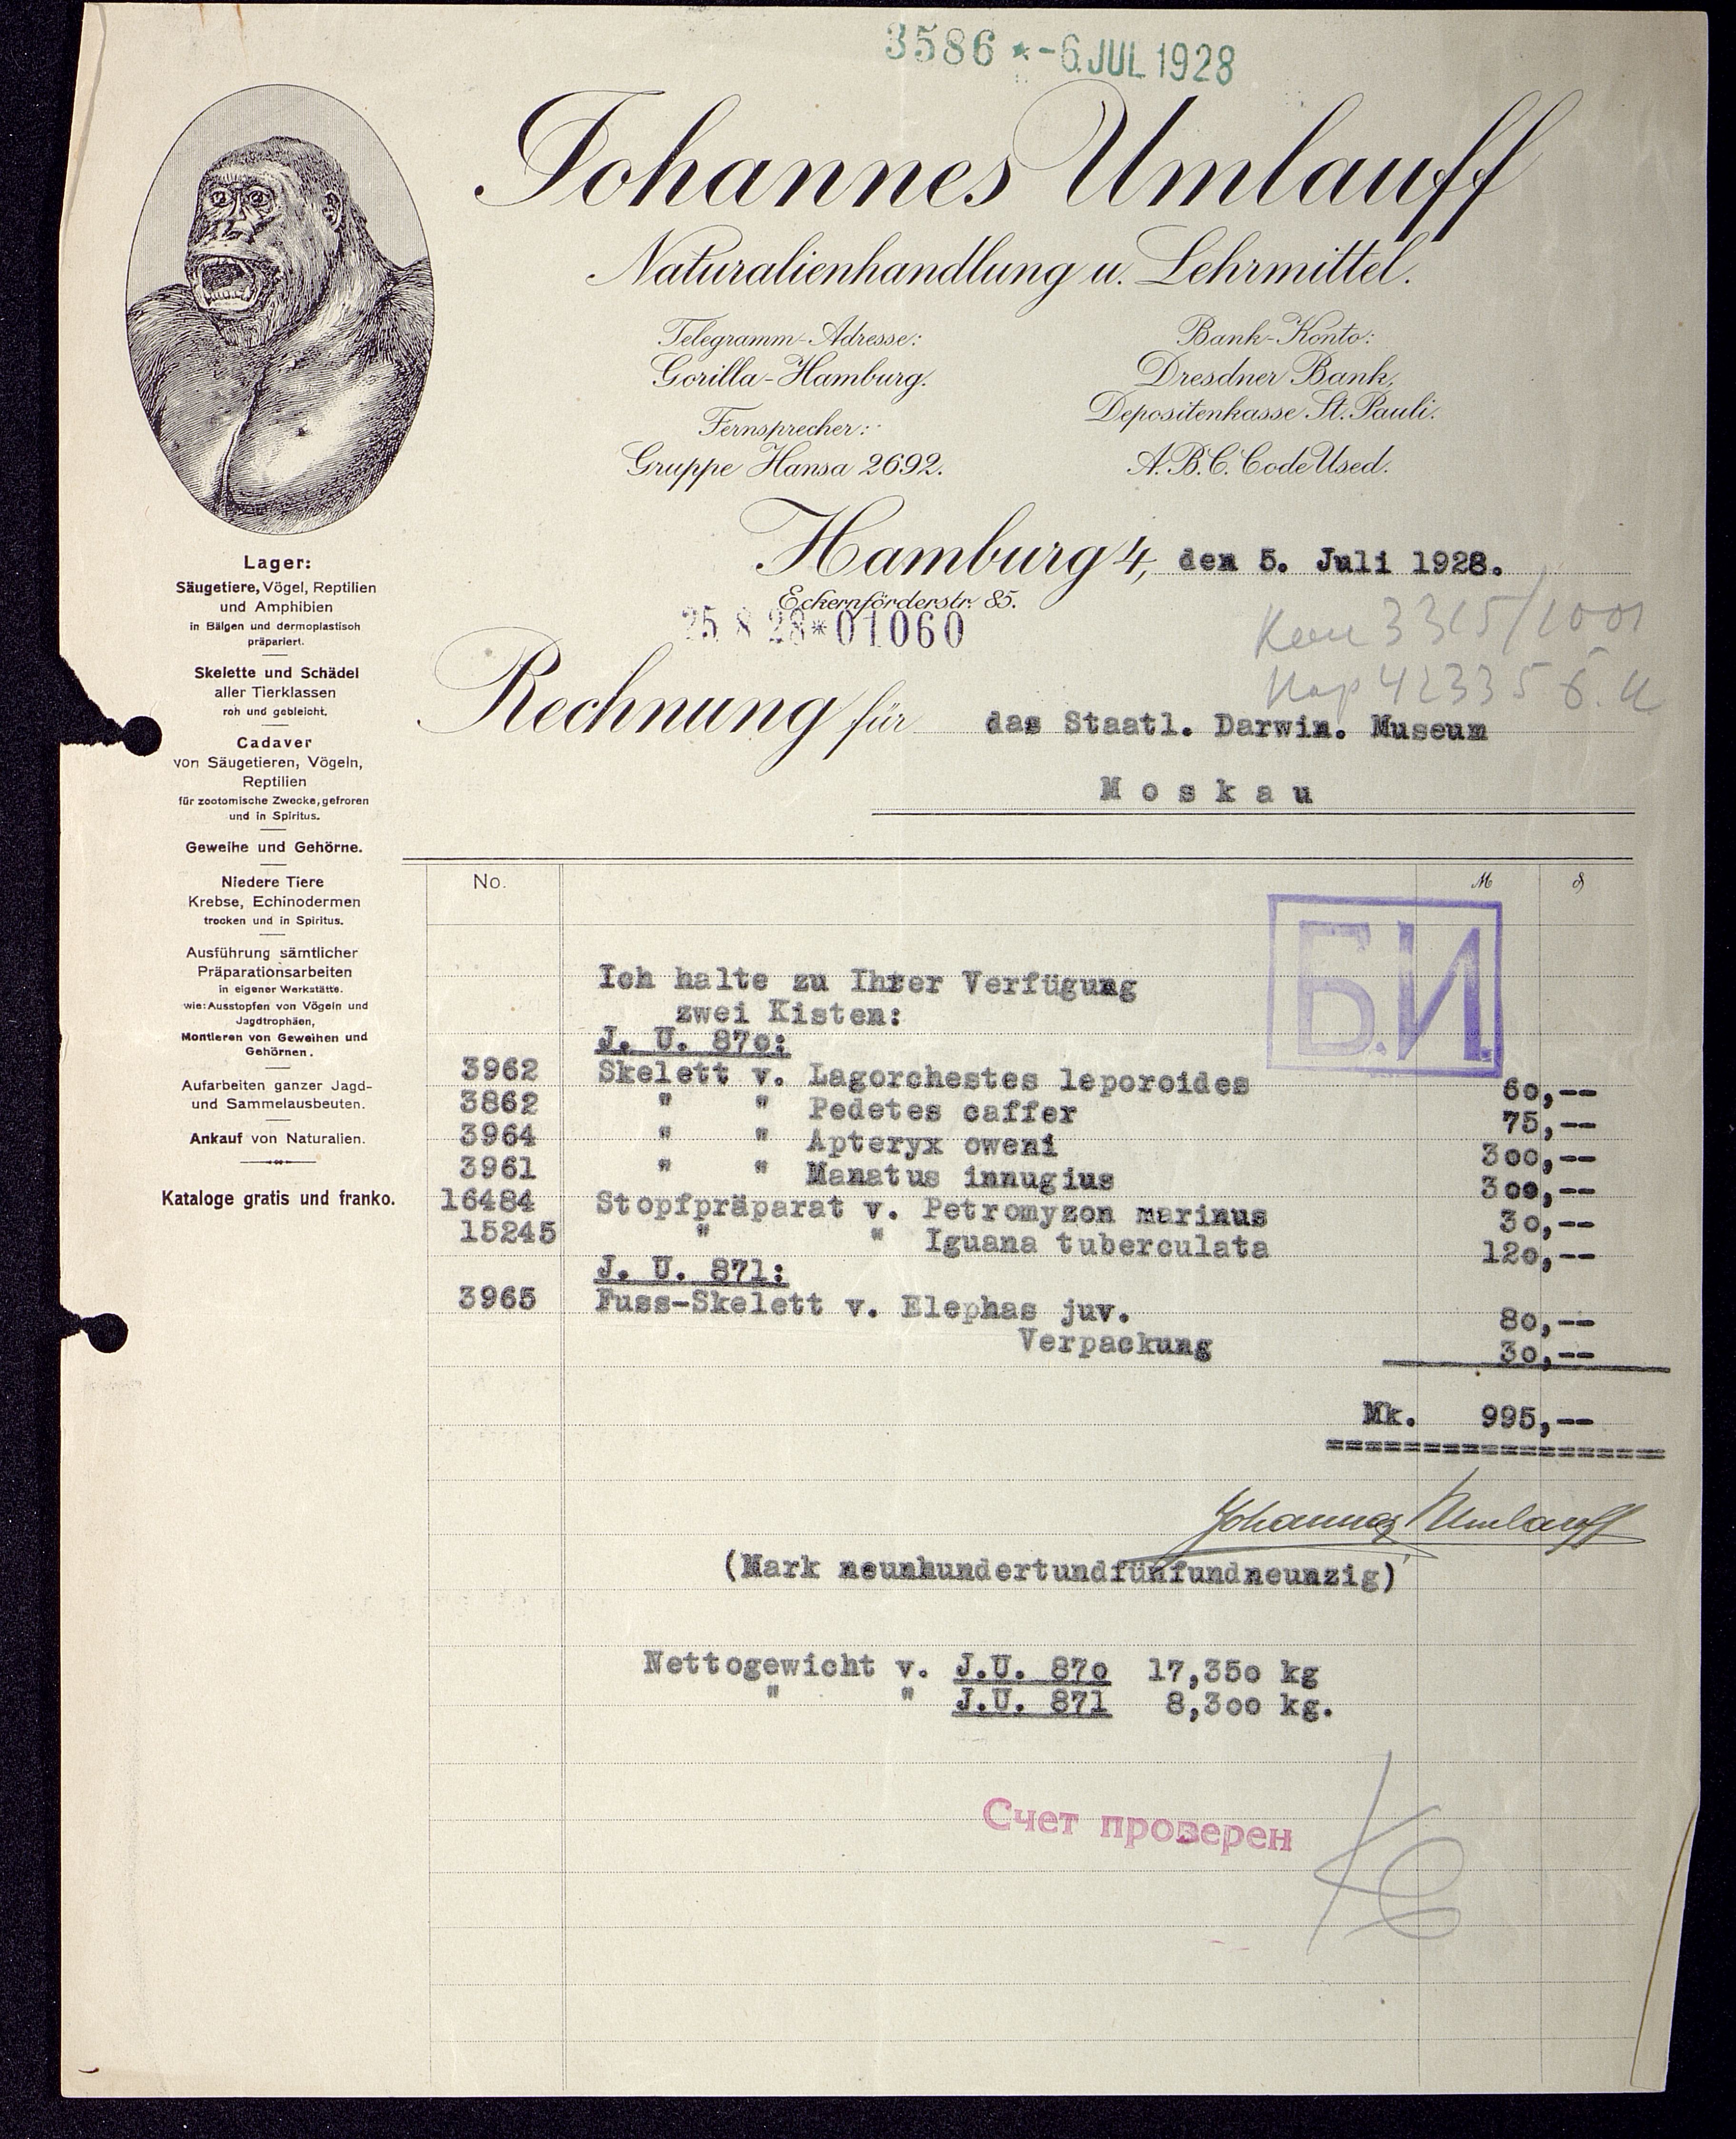 3586 * -6. JUL 1928
Johannes Umlauff
Naturalienhandlung u. Lehrmittel.
Telegramm-Adresse:
Gorilla-Hamburg.
Fernsprecher:
Gruppe Hansa 2692.
Bank-Konto:
Dresdner Bank,
Depositenkasse St. Pauli.
A.B.C. Code Used.
Hamburg 4, den 5. Juli 1928.
Eckernförderstr. 85.
25 8 28*01060
3315/1001
42335
Rechnung für das Staatl. Darwin. Museum
Moskau
Lager:
Säugetiere, Vögel, Reptilien
und Amphibien
in Bälgen und dermoplastisch
präpariert.
Skelette und Schädel
aller Tierklassen
roh und gebleicht.
Cadaver
von Säugetieren, Vögeln,
Reptilien
für zootomische Zwecke, gefroren
und in Spiritus.
Geweihe und Gehörne.
Niedere Tiere
Krebse, Echinodermen
trocken und in Spiritus.
Ausführung sämtlicher
Präparationsarbeiten
in eigener Werkstätte.
wie: Ausstopfen von Vögeln und
Jagdtrophäen,
Montieren von Geweihen und
Gehörnen.
Aufarbeiten ganzer Jagd-
und Sammelausbeuten.
Ankauf von Naturalien.
Kataloge gratis und franko.
No. M ₰
Б.И.
Ich halte zu Ihrer Verfügung
zwei Kisten:
J. U. 870:
3962 Skelett v. Lagorchestes leporoides 60,--
3862 " " Pedetes caffer 75,--
3964 " " Apteryx oweni 300,--
3961 " " Manatus innugius 300,--
16484 Stopfpräparat v. Petromyzon marinus 30,--
15245 " " Iguana tuberculata 120,--
J. U. 871:
3965 Fuss-Skelett v. Elephas juv. 80,--
Verpackung 30,--
Mk. 995,--
Johannes Umlauff
(Mark neunhundertundfünfundneunzig)
Nettogewicht v. J.U. 870 17,350 kg
" " J.U. 871 8,300 kg.
Счет проверен